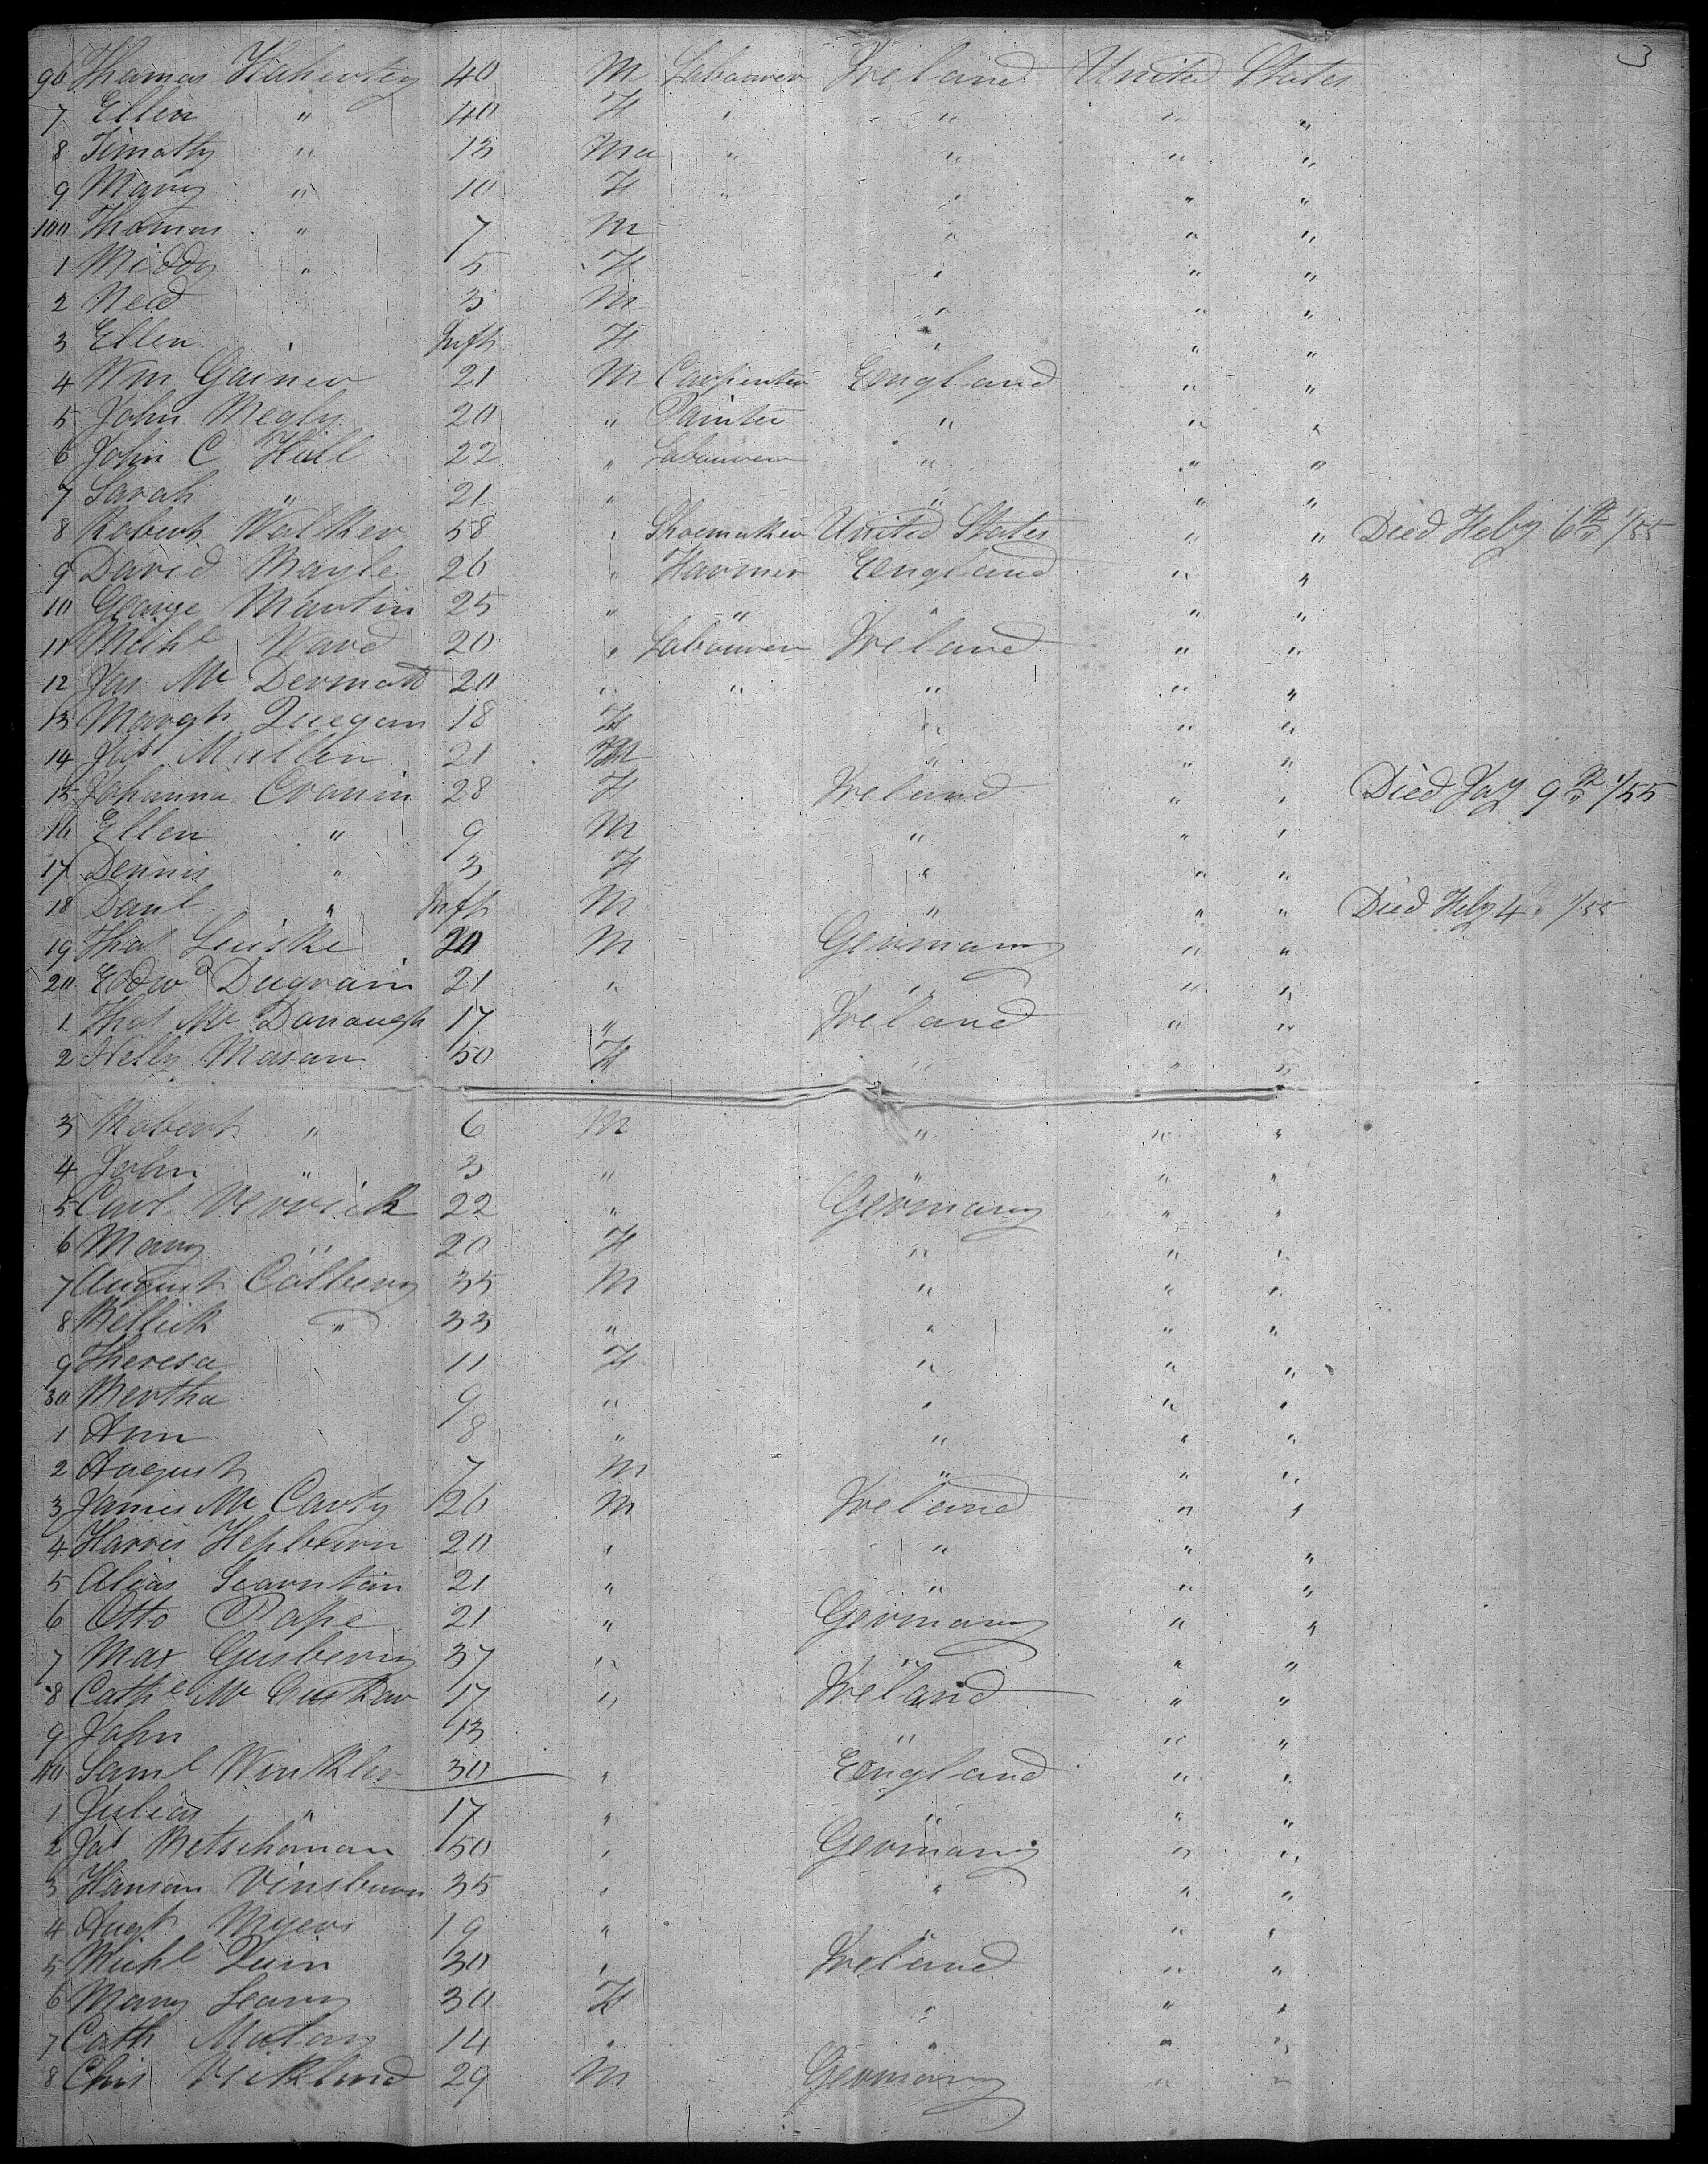 3
96 Thomas Flaherty 40 M Labourer Ireland United States
7 Ellen " 40 F " " " "
8 Timothy " 13 Ma " " " "
9 Mary " 10 F " " " "
100 Thomas " 7 M " " "
1 Middy " 5 F " " "
2 Ned 3 M " " "
3 Ellen " Inft F " " "
4 Wm Gainer 21 M Carpenter England " "
5 John Begly 20 " Painter " " "
6 John C Hill 22 " Labourer " " "
7 Sarah " 21 " " " "
8 Robert Walker 58 " Shoemaker United States " " Died Feby 6th 1/55
9 David Mayle 26 " Farmer England " "
10 George Martin 25 " " " " "
11 Michl Ward 20 " Labourer Ireland " "
12 Jas Mc Dermott 20 " " " " "
13 Margt Duegan 18 F " " "
14 Jas Mullen 21 M " " "
15 Johanna Cronin 28 F Ireland " " Died Jay 9th 1/55
16 Ellen " 9 M " " "
17 Dennis " 3 F " " "
18 Danl " Infh M " " " Died Feby 4 " 1/55
19 Thos Luiske 20 M Germany " "
20 Edwd Dugrain 21 " " " "
1 Thos Mc Donough 17 " Ireland " "
2 Nelly Mason 50 F " " "
3 Robert " 6 M " " "
4 John " 3 " " "
5 Carl Verrick 22 " Germany " "
6 Mary " 20 F " " "
7 August Colberg 35 M " " "
8 Bellick " 33 " " " "
9 Theresa 11 F " " "
30 Bertha 9 " " " "
1 Ann 8 " " " "
2 August 7 M " " "
3 James Mc Carty 26 M Ireland " "
4 Harris Hepburn 20 " " " "
5 Alias 21 " " " "
6 Otto Pape 21 " Germany " "
7 Max Gusberg 37 " " " "
8 Cathe Mc 17 " Ireland " "
9 John 13 " " "
40 Saml Winkler 30 " England " "
1 Julias " 17 " " " "
2 Jos Betschoman 50 " Germany " "
3 Hanson Vinsburn 35 " " " "
4 Augt Myers 19 " " " "
5 Michl Quin 30 " Ireland " "
6 Mary Leary 30 F " " "
7 Cath Malony 14 " " " "
8 Chis Vickland 29 M Germany " "